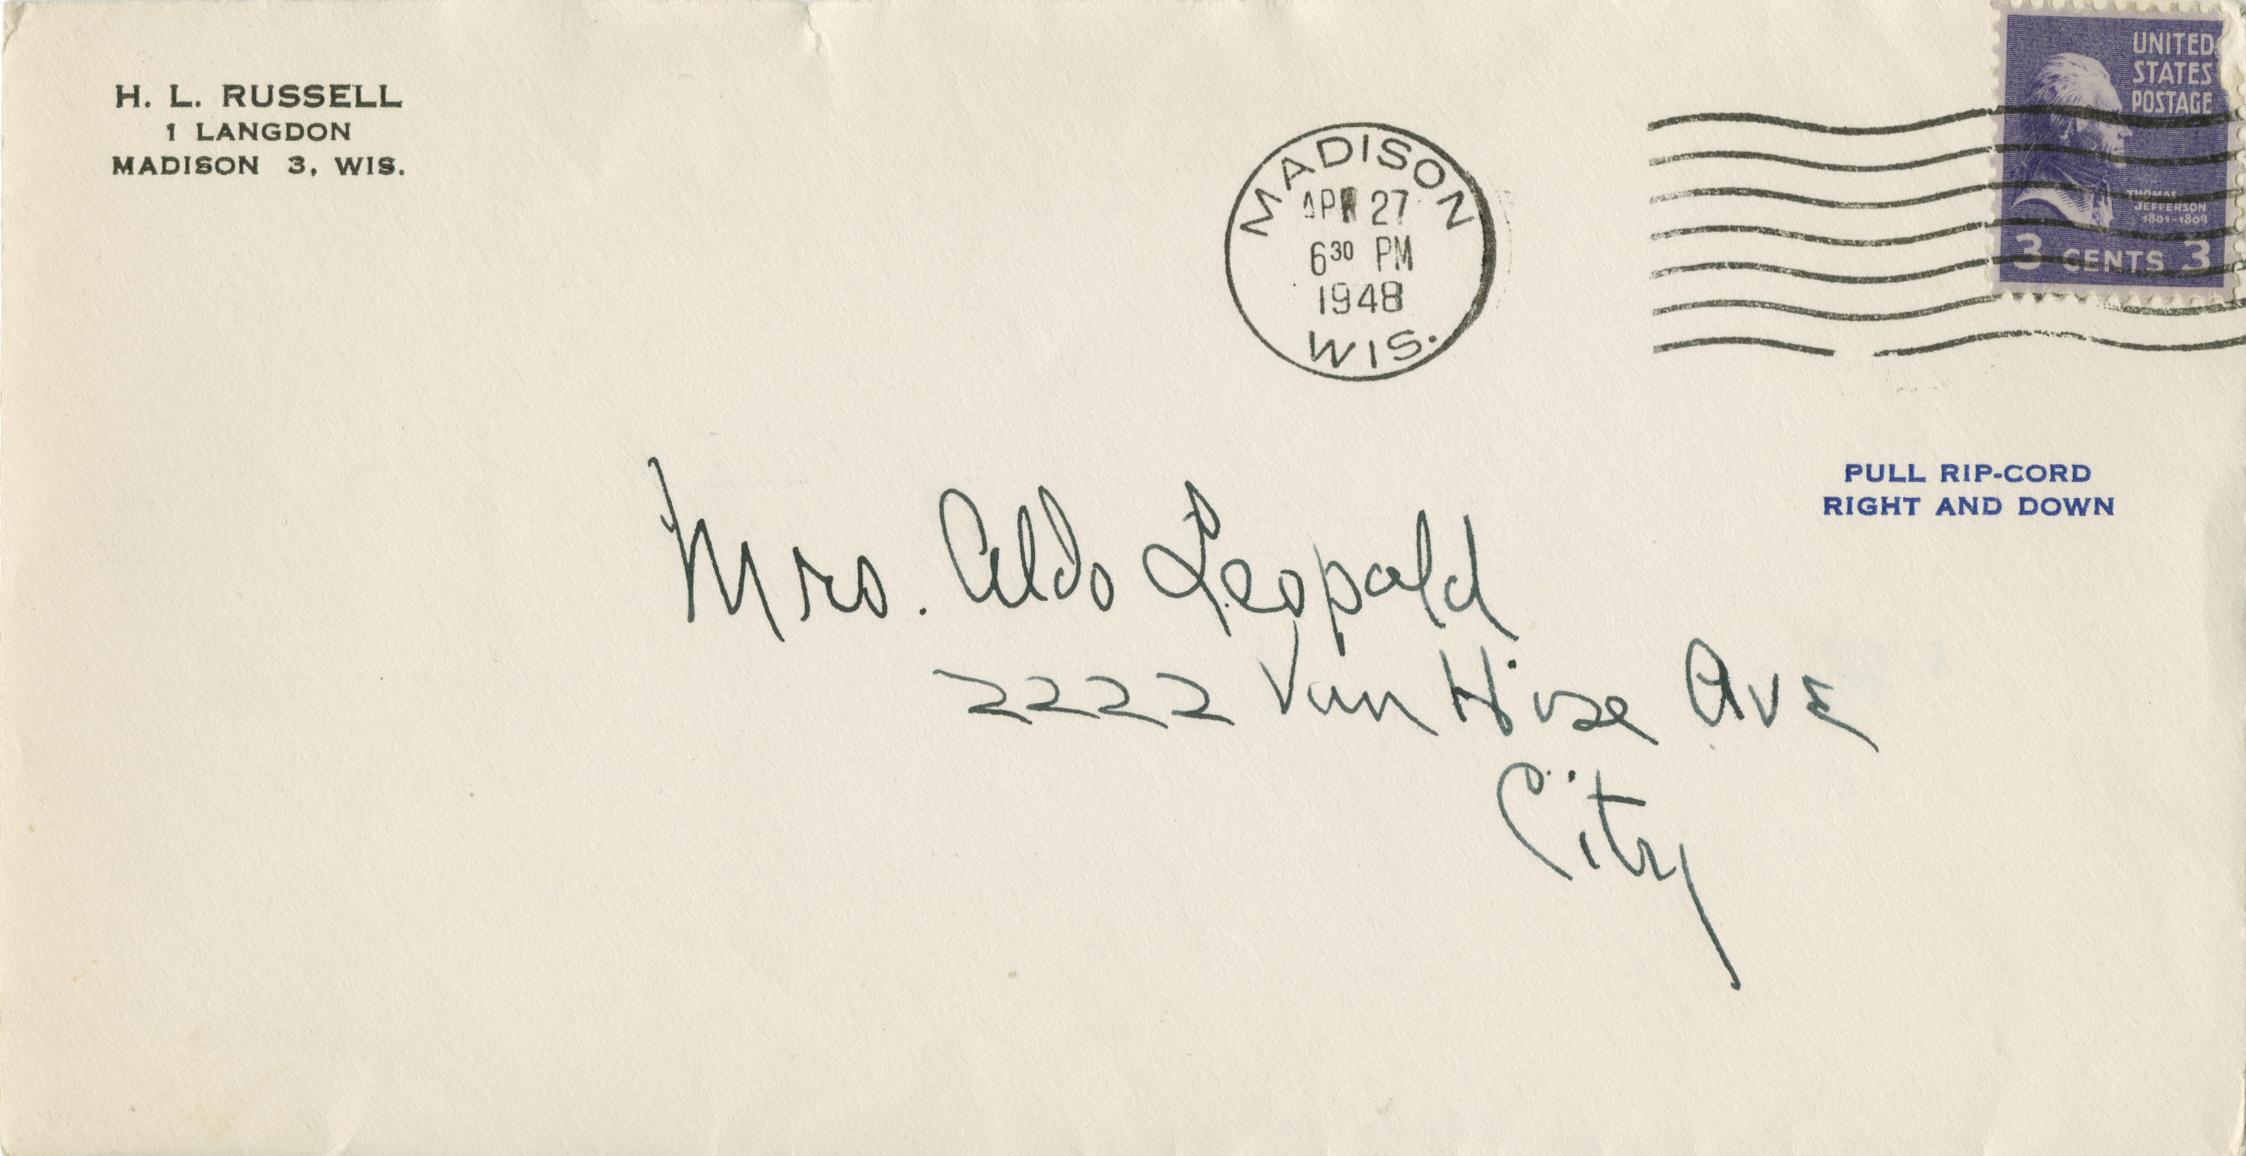 H. L. RUSSELL
1 LANGDON
MADISON 3, WIS.
MADISON
APR 27
6 30 PM
1948
WIS.
UNITED
STATES
POSTAGE
THOMAS
JEFFERSON
1801-1809
3 CENTS 3
PULL RIP-CORD
RIGHT AND DOWN
Mrs. Aldo Leopold
2222 Van Hise Ave
City